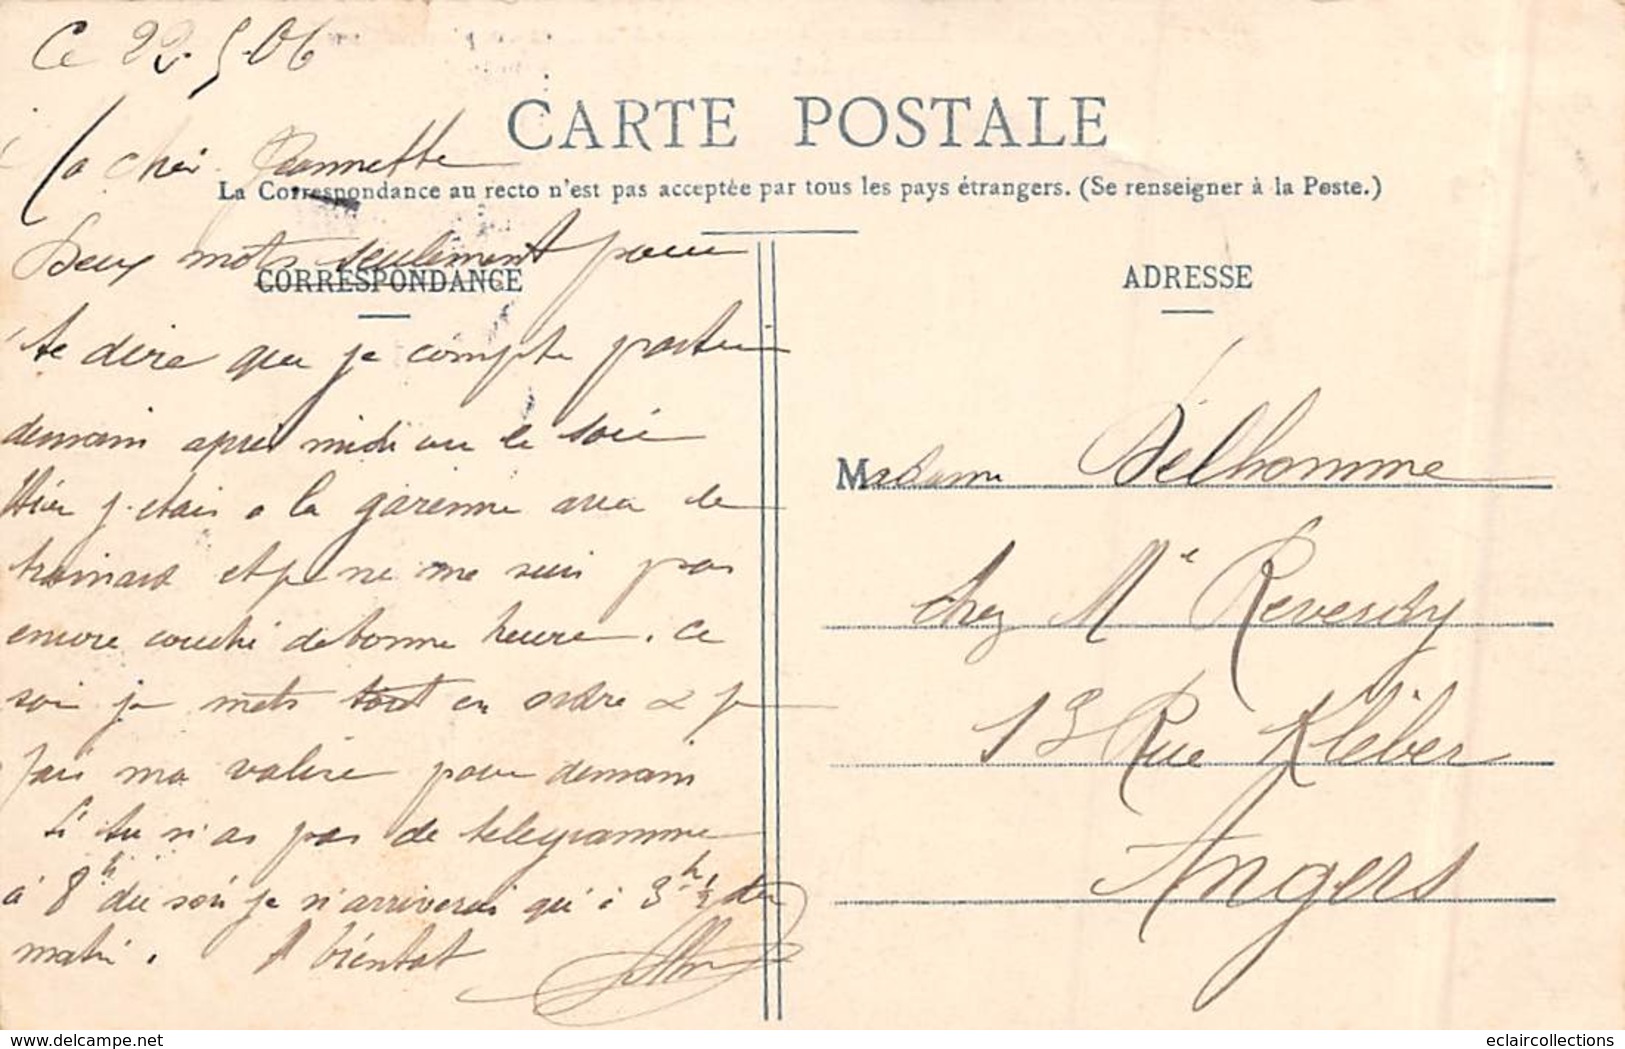 Ce 22.5.06
CARTE POSTALE
La Correspondance au recto n'est pas acceptée par tous les pays étrangers. (Se renseigner à la Poste.)
CORRESPONDANCE
Ma cher Jeannette
Deux mots seulement pour
te dire que je compte
demain après midi ou le soir
Hier j'etais a la garenne avec le
et je ne me suis pas
encore couché de bonne heure. Ce
soir je mets tout en ordre & je
fais ma valise pour demain
Si tu n'as pas de telegramme
à 8h du soir je n'arriverai qu'à 3h 1/2 du
matin. A bientot
ADRESSE
Madame Delhomme
chez Me
13 Rue Kléber
Angers
delcampe.net
eclaircollections